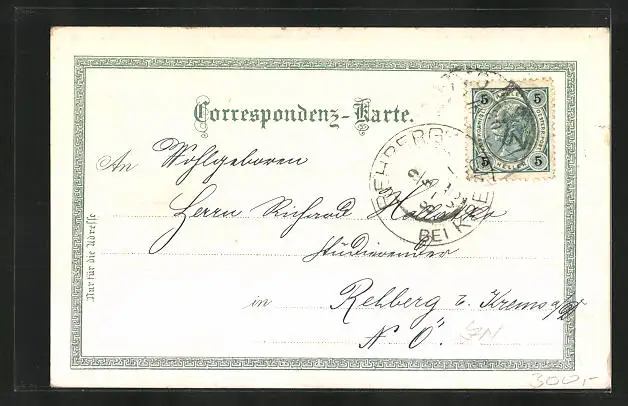 Correspondenz-Karte.
5 5
5 HELLER 5
REHBERG BEI KREMS
An Wohlgeboren
Herrn Richard
Studierender
in Rehberg b. Krems a/D
N. Ö.
Nur für die Adresse
300,-